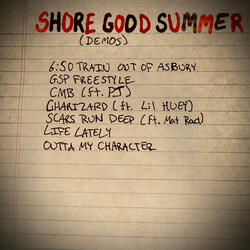 SHORE GOOD SUMMER
(DEMOS)
6:50 TRAIN OUT OF ASBURY
GSP FREESTYLE
CMB (ft. PJ)
CHARIZARD (ft. Lil HUEY)
SCARS RUN DEEP (ft. Mat Rad)
LIFE LATELY
OUTTA MY CHARACTER